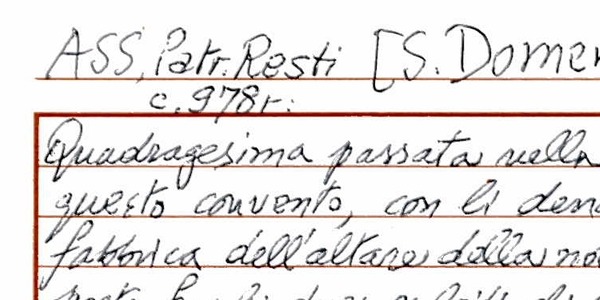 ASS, Patr. Resti [S. Domen
c. 978r:
Quadragesima passata nella
questo convento, con li dena
fabbrica dell'altare della no